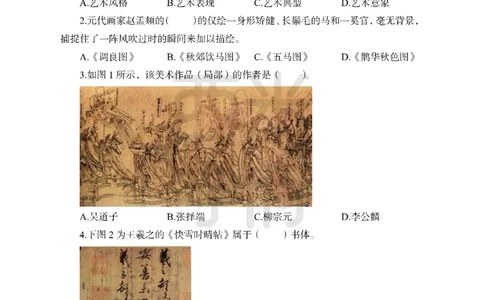 A.艺术风格 B.艺术表现 C.艺术典型 D.艺术意象
2.元代画家赵孟頫的( )的仅绘一身形矫健、长鬃毛的马和一奚官,毫无背景,
捕捉住了一阵风吹过时的瞬间来加以描绘。
A.《调良图》 B.《秋郊饮马图》 C.《五马图》 D.《鹊华秋色图》
3.如图 1 所示,该美术作品(局部)的作者是( )。
A.吴道子 B.张择端 C.柳宗元 D.李公麟
4.下图 2 为王羲之的《快雪时晴帖》属于( )书体。